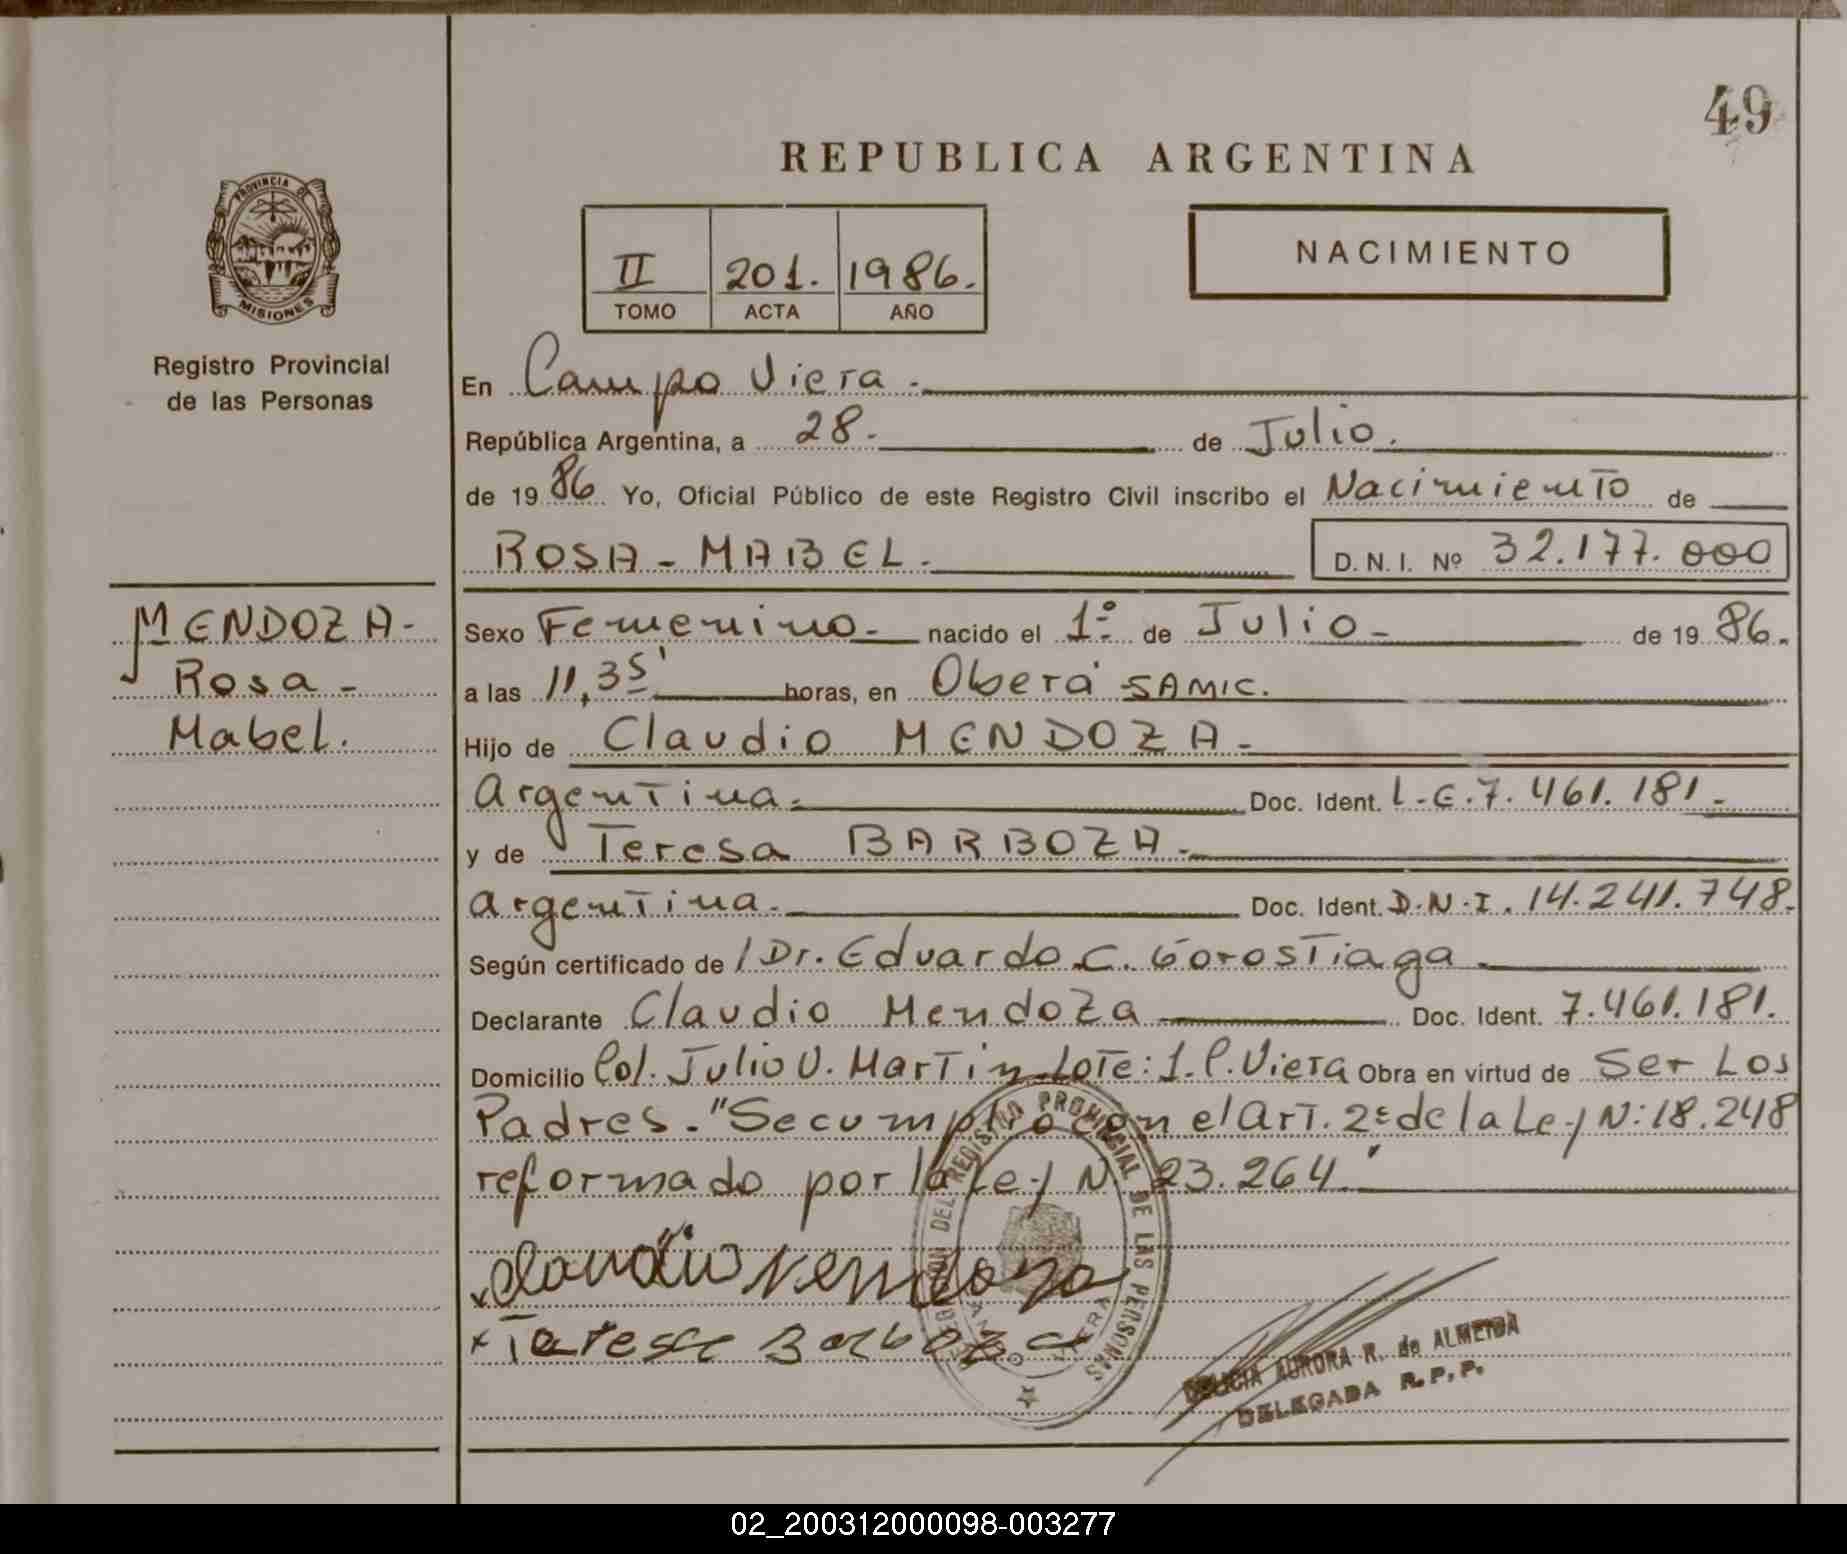 49
REPUBLICA ARGENTINA
PROVINCIA DE
MISIONES
Registro Provincial
de las Personas
II 201. 1986.
TOMO ACTA AÑO
NACIMIENTO
En Campo Viera.
República Argentina, a 28. de Julio.
de 19 86 Yo, Oficial Público de este Registro Civil inscribo el Nacimiento de
ROSA - MABEL.
D.N.I. Nº 32.177.000
MENDOZA-
Rosa -
Mabel.
Sexo Femenino- nacido el 1º de Julio- de 19 86.
a las 11,35' horas, en Oberá SAMIC.
Hijo de Claudio MENDOZA-
Argentina. Doc. Ident. L.E.7.461.181.-
y de Teresa BARBOZA.
Argentina. Doc. Ident. D.N.I. 14.241.748.
Según certificado de /Dr. Eduardo C. Gorostiaga
Declarante Claudio Mendoza Doc. Ident. 7.461.181.
Domicilio Col. Julio U. Martin Lote: 1. C. Viera Obra en virtud de Ser Los
Padres. "Se cumplio con el Art. 2º de la Ley N: 18.248
reformado por la Ley N. 23.264"
x Claudio Mendoza
x Teresa Barboza
DEL REGISTRO PROVINCIAL DE LAS PERSONAS
DELICIA AURORA R. de ALMEIDA
DELEGADA R.P.P.
02_200312000098-003277